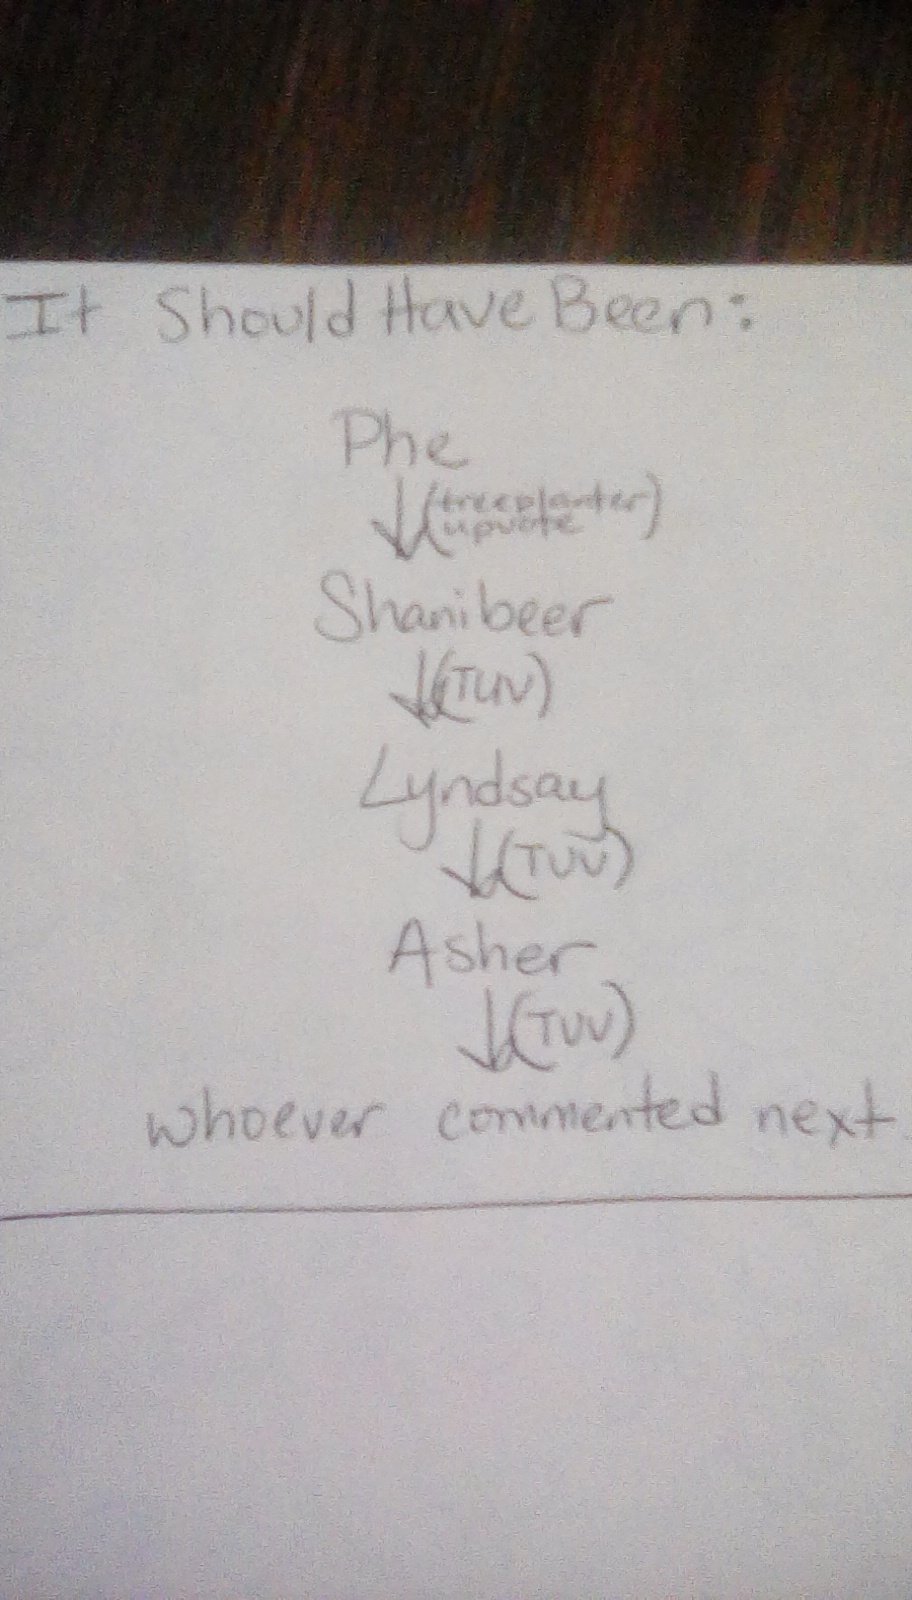 It Should Have Been:
Phe
↓(treeplanter
upvote)
Shanibeer
↓(TUV)
Lyndsay
↓(TUV)
Asher
↓(TUV)
whoever commented next